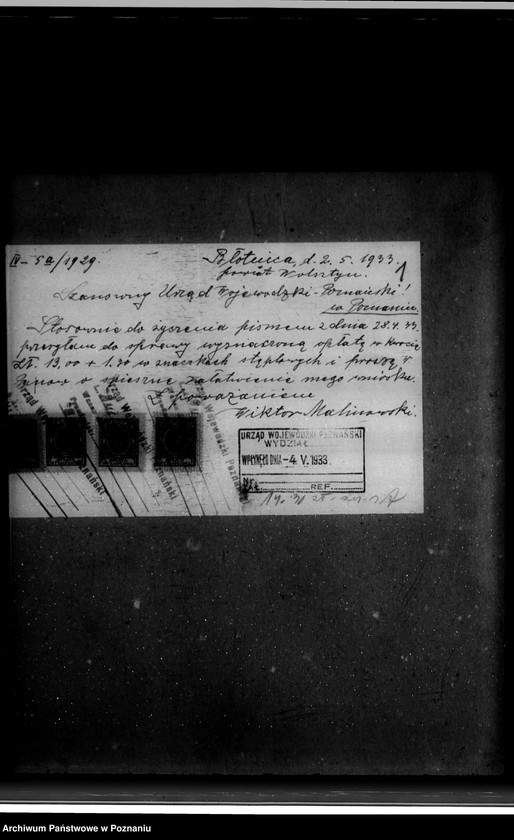 IV - 5a/1929.
Błotnica, d. 2. 5. 1933.
powiat Wolsztyn.
1
Szanowny Urząd Wojewodzki - Poznański!
w Poznaniu.
Stosownie do życzenia pismem z dnia 28.4.33
przesyłam do sprawy wyznaczoną opłatę w kwocie
Zł. 13,00 + 1.30 w znaczkach stęplowych i proszę
o spieszne załatwienie mego wniosku.
Z poważaniem
Wiktor Malinowski.
Urząd Wojewódzki Poznański
URZĄD WOJEWÓDZKI POZNAŃSKI
WYDZIAŁ
WPŁYNĘŁO DNIA - 4. V. 1933
NR.
ZAŁ. REF.
Archiwum Państwowe w Poznaniu